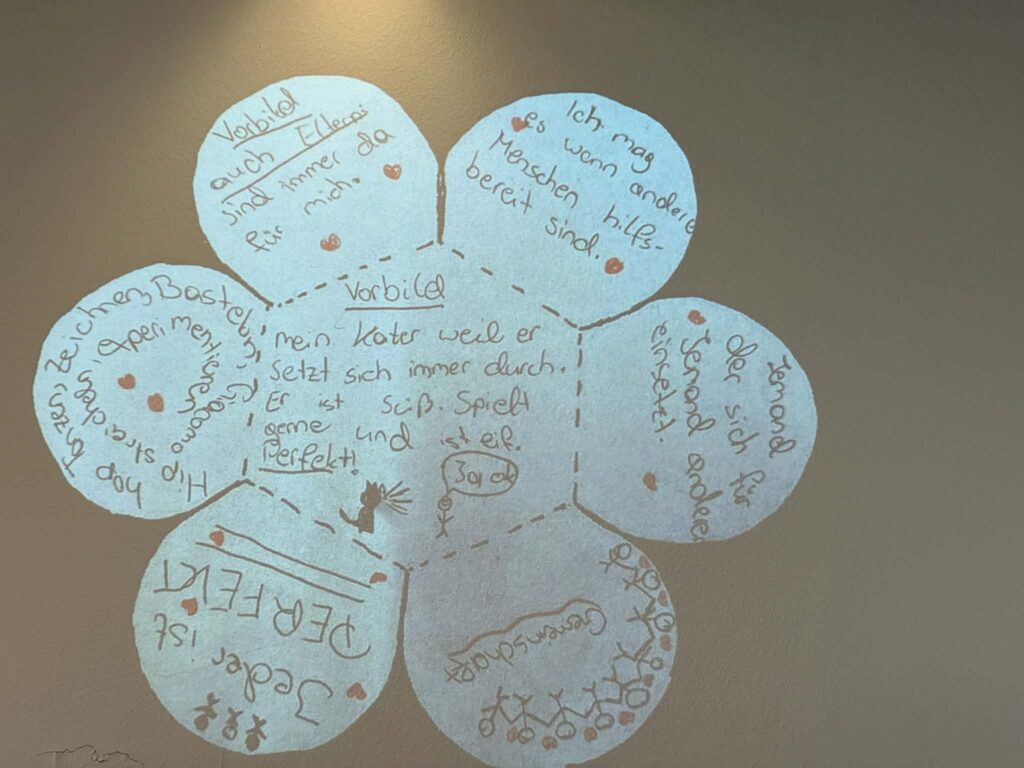 Vorbild
auch Eltern:
sind immer da
für mich.
Ich mag
es wenn andere
Menschen hilfs-
bereit sind.
Jemand
der sich für
Jemand anderen
einsetzt.
Gemeinschaft
Jeder ist
PERFEKT
Hip hop
Tanzen, Zeichnen, Basteln,
Giacomo streicheln,
experimentieren
Vorbild
mein Kater weil er
setzt sich immer durch.
Er ist süß. Spielt
gerne und ist
Perfekt!